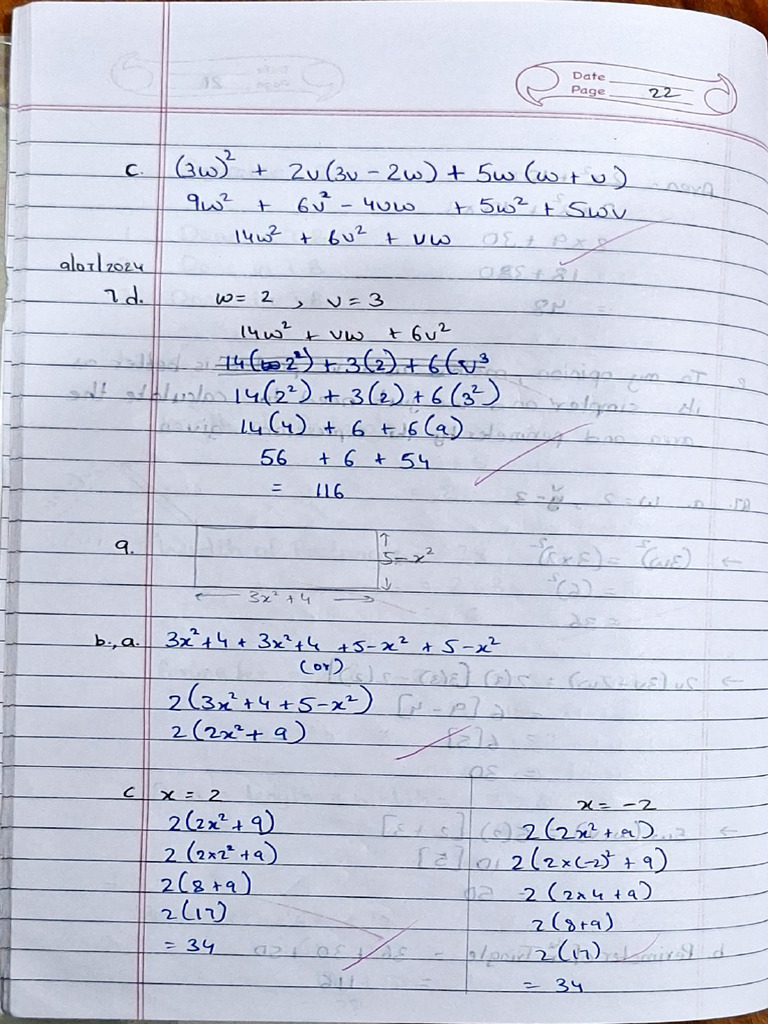 Date
Page 22
c. (3w)² + 2v(3v - 2w) + 5w (w + v)
9w² + 6v² - 4vw + 5w² + 5wv
14w² + 6v² + vw
7 d. w = 2 , v = 3
14w² + vw + 6v²
14(2²) + 3(2) + 6(v³
14(2²) + 3(2) + 6(3²)
14(4) + 6 + 6(9)
56 + 6 + 54
= 116
9. 5 - x²
3x² + 4
b., a. 3x² + 4 + 3x² + 4 + 5 - x² + 5 - x²
(or)
2(3x² + 4 + 5 - x²)
2(2x² + 9)
c x = 2
2(2x² + 9)
2(2x2² + 9)
2(8 + 9)
2(17)
= 34
x = -2
2(2x² + 9)
2(2x(-2)² + 9)
2(2x4 + 9)
2(8+9)
2(17)
= 34